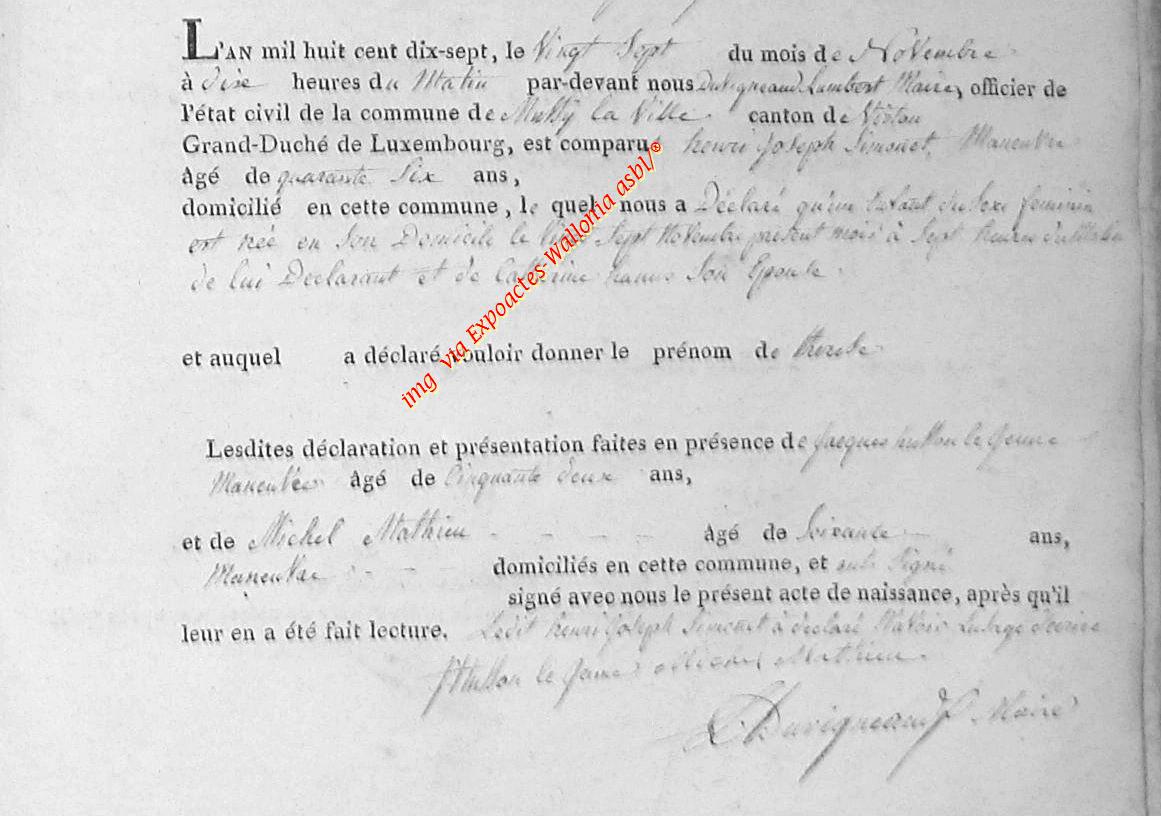 L'AN mil huit cent dix-sept, le Vingt Sept du mois de Novembre
à dixe heures du Matin par-devant nous Duvigneaud Lambert Maire, officier de
l'état civil de la commune de Mussy la Ville canton de Virton
Grand-Duché de Luxembourg, est comparu henri Joseph Simonet, Maneuvre
âgé de quarante Six ans,
domicilié en cette commune, le quel nous a Déclaré qu'un Enfant du Sexe feminin
est née en Son Domicile le Sept Novembre present mois à Sept heures du Matin
de lui Declarant et de Catherine hanus Son Epouse.
et auquel a déclaré vouloir donner le prénom de therese
Lesdites déclaration et présentation faites en présence de Jacques husson le Jeune
Maneuvre âgé de Cinquante deux ans,
et de Michel Mathieu âgé de Soixante ans,
Maneuvre domiciliés en cette commune, et ont Signé
signé avec nous le présent acte de naissance, après qu'il
leur en a été fait lecture. Ledit henri Joseph Simonet à déclaré
J husson le Jeune Michel Mathieu.
L. Duvigneaud Maire
img via Expoactes-Wallonia asbl/©